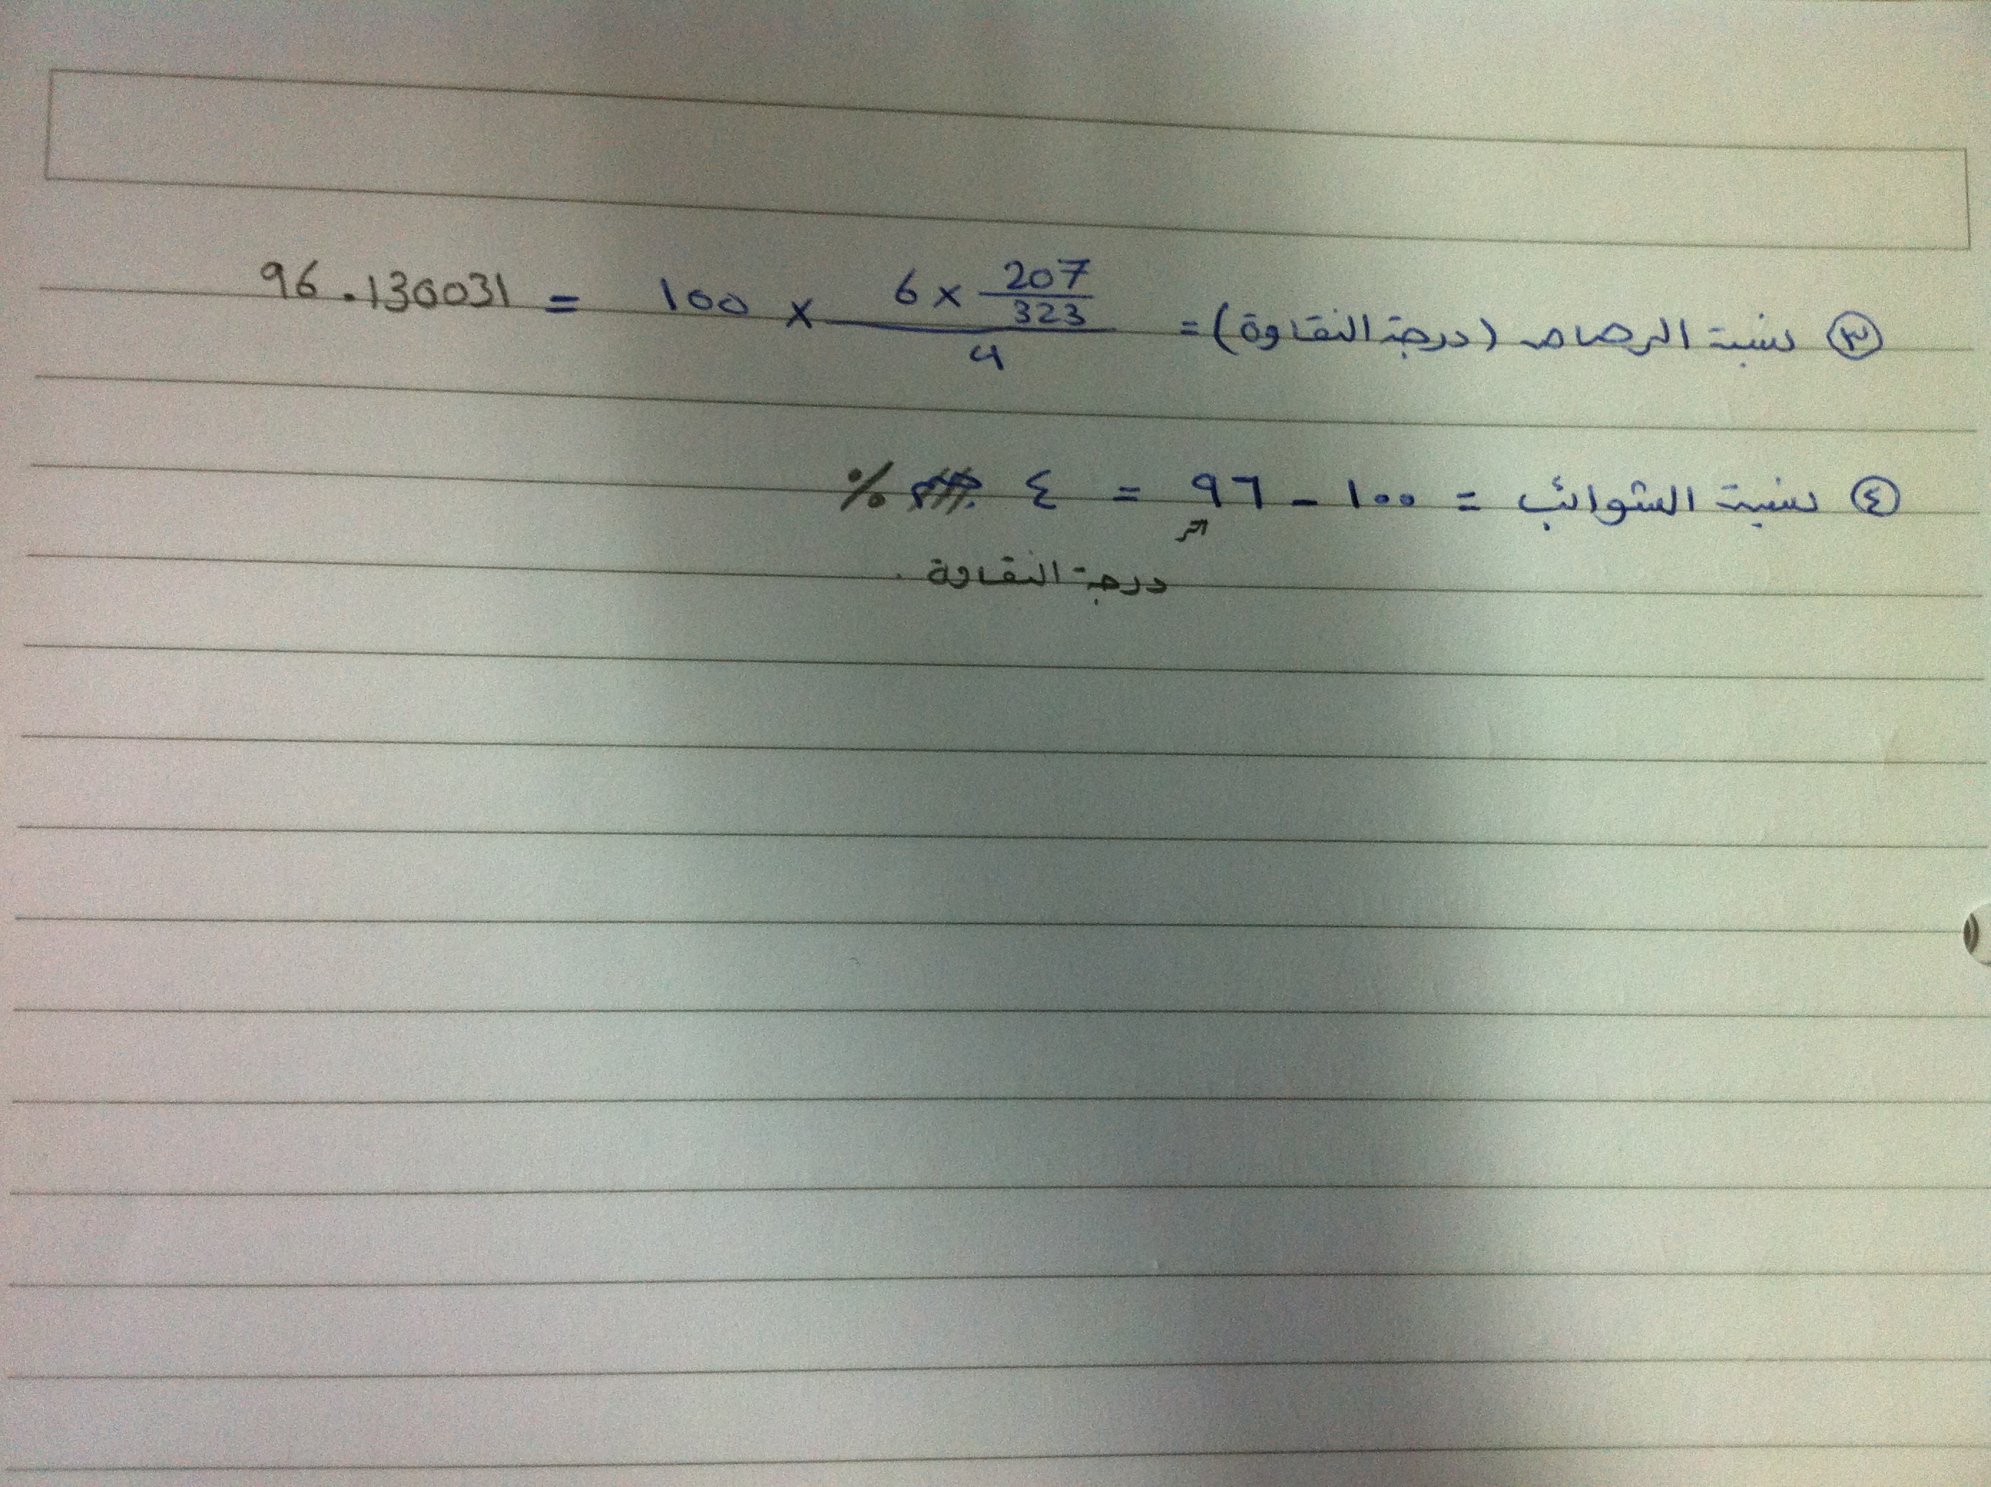 ③ نسبة الرصاص (درجة النقاوة) = 6 × 207/323 / 4 × 100 = 96.130031
④ نسبة الشوائب = ١٠٠ - ٩٦ = ٤ %
درجة النقاوة.